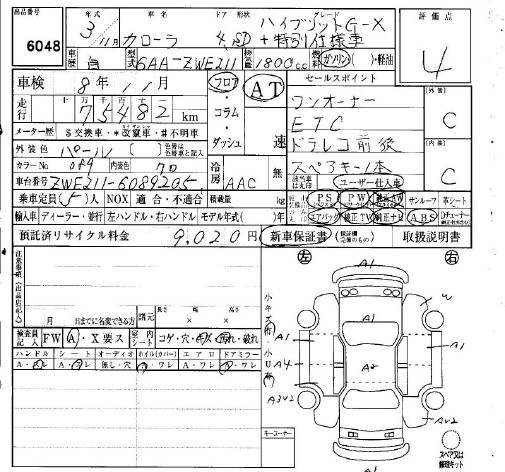 出品番号
6048
年式
3/11月
車名
カローラ
ドア 形状
4 SD
グレード
ハイブリッドG-X
+特別仕様車
評価点
4
車歴
自
型式
6AA-ZWE211
排気量
1800cc
燃料
ガソリン・軽油
車検
8年11月
走行
75482km
メーター歴
$交換車・*改竄車・#不明車
外装色
パール
色替は旧色替車と記入
カラーNo
089
内装色
クロ
車台番号
ZWE211-6089205
乗車定員(5)人
NOX 適合・不適合
積載量
kg
輸入車
ディーラー・並行
左ハンドル・右ハンドル
モデル年式( )年
預託済リサイクル料金
9,020円
フロア・コラム・ダッシュ
AT
速
冷房
AAC
無
セールスポイント
ワンオーナー
ETC
ドラレコ前後
スペアキー1本
ユーザー仕入車
PS
PW
純正AW
サンルーフ
革シート
エアバッグ
純正TV
純正ナビ
ABS
新車保証書
取扱説明書
外装
C
内装
C
注意事項(出品店記入)
月 日までに名変できる方
諸元
長さ
幅
高さ
× ×
検査員記入
FW
A・X要ス
室内シート
コゲ・穴・キズ・汚れ・破れ
ハンドル
シート
オーディオ
ホイル(カバー)
エアロ
ドアミラー
無し・穴
左
右
A1
小キズ有
小U有
W
A1
A1
A1
A4
A2
A3V2
AV2
A1
キーコーナー
スペア又は
修理キット